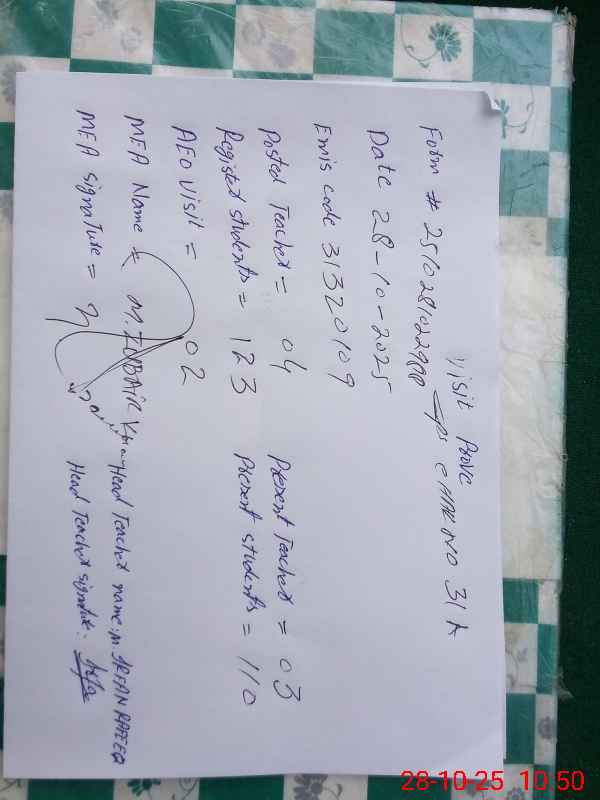 Visit Prove
Form # 251028102988 GPS CHAK NO 31 A
Date 28-10-2025
Emis code 31320109
Posted Teacher = 04 Present Teacher = 03
Registed students = 123 Present students = 110
AEO Visit = 02
MEA Name = M. ZUBAIR Khan Head Teacher name: M. IRFAN RAFEEQ
MEA Signature = Head Teacher signature:
28-10-25 10:50